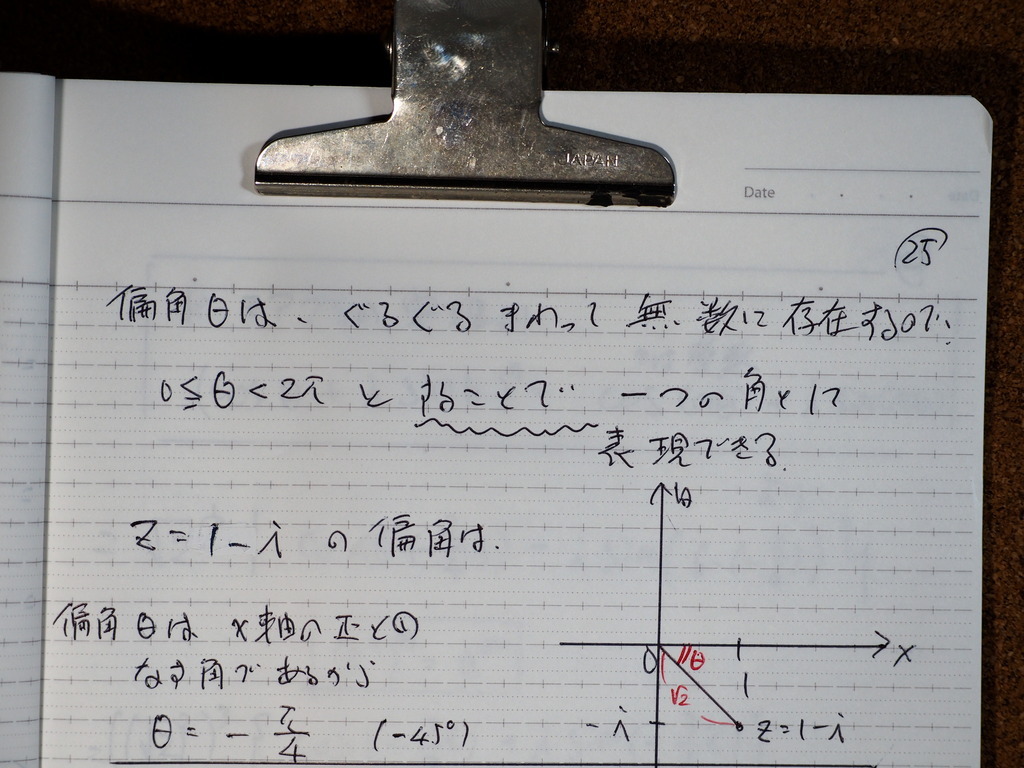 JAPAN
Date
25
偏角θは、ぐるぐるまわって無数に存在するので、
0≦θ<2πとすることで 一つの角として
表現できる.
y
z=1-iの偏角は.
偏角θはx軸の正との
なす角であるから
θ=-π/4 (-45°)
0 θ 1 x
√2
-i z=1-i